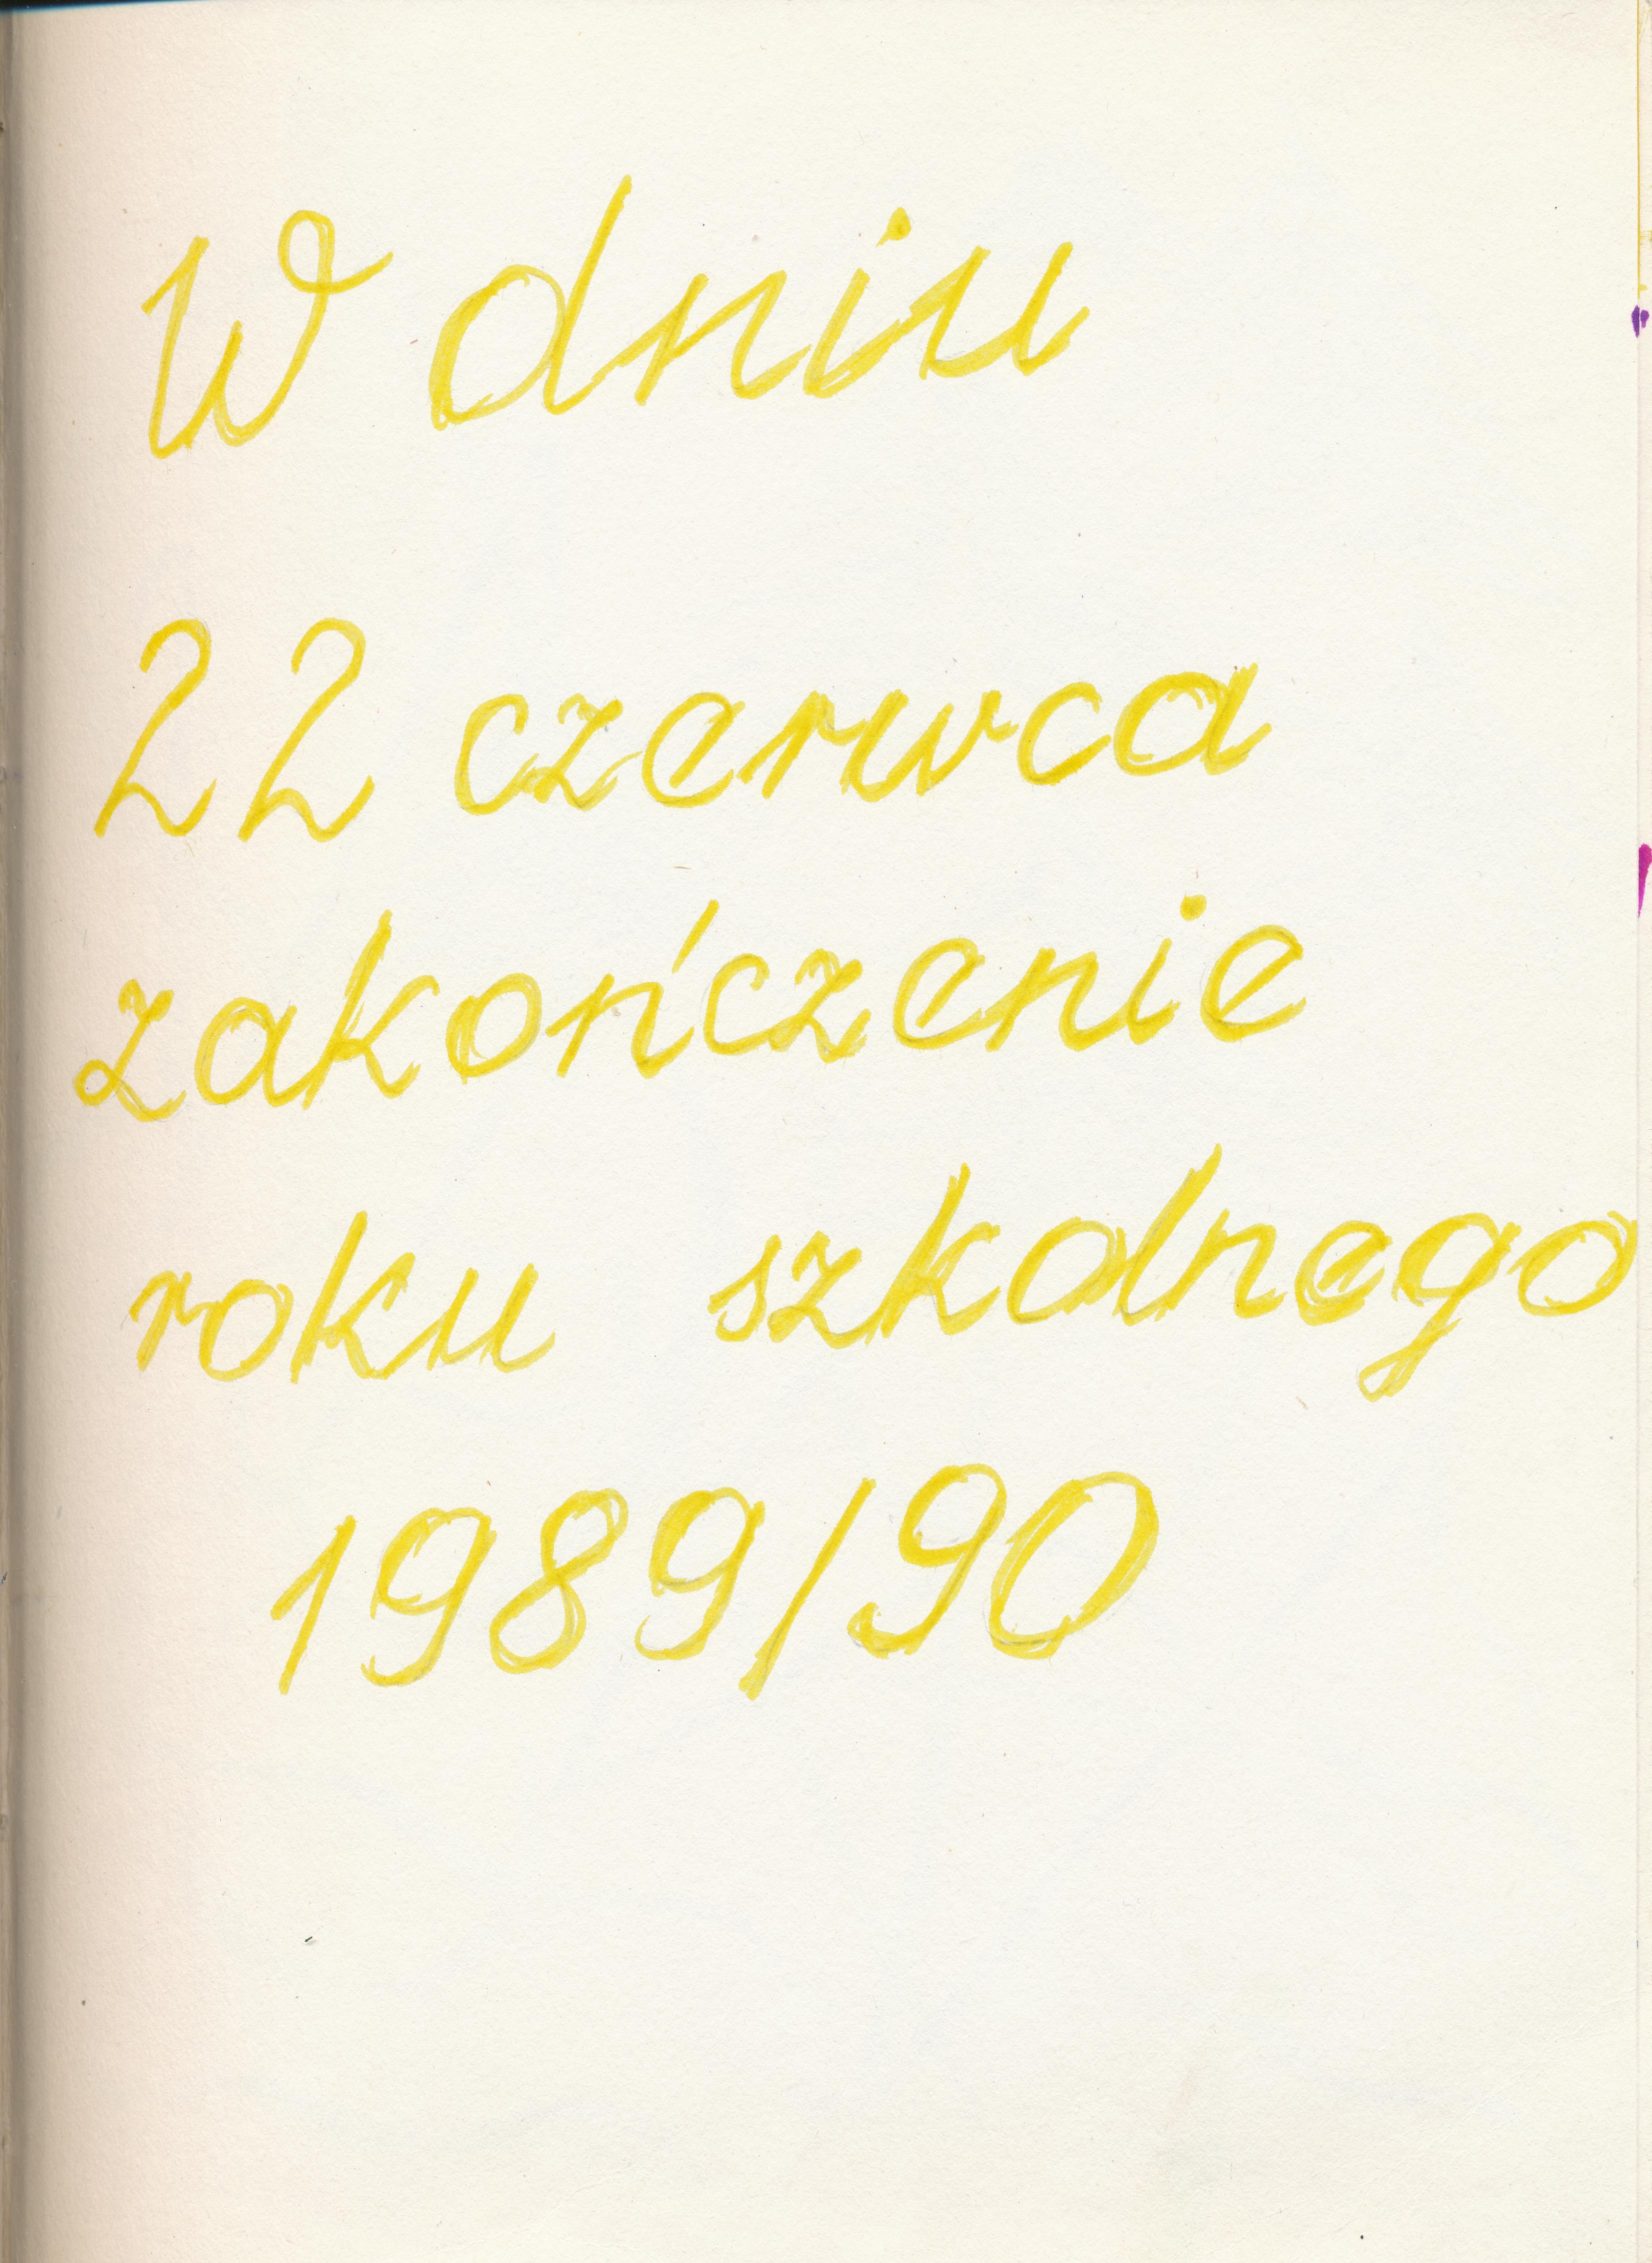 W dniu
22 czerwca
zakończenie
roku szkolnego
1989/90